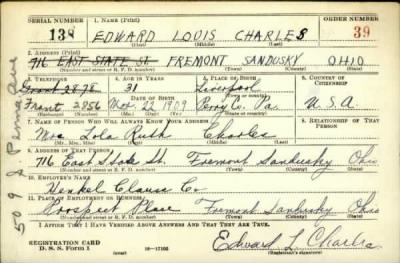 SERIAL NUMBER 1. NAME (Print) ORDER NUMBER
138 EDWARD LOUIS CHARLES 39
(First) (Middle) (Last)
2. ADDRESS (Print)
716 EAST STATE ST. FREMONT SANDUSKY OHIO
(Number and street or R. F. D. number) (Town) (County) (State)
3. TELEPHONE 4. AGE IN YEARS 5. PLACE OF BIRTH 6. COUNTRY OF CITIZENSHIP
31 Liverpool
Frant 2856 Mar 22 1909 Perry Co. Pa. U.S.A.
7. NAME OF PERSON WHO WILL ALWAYS KNOW YOUR ADDRESS 8. RELATIONSHIP OF THAT PERSON
Mrs Lola Ruth Charles
(Mr., Mrs., Miss) (First) (Middle) (Last)
9. ADDRESS OF THAT PERSON
716 East State St. Fremont Sandusky Ohio
(Number and street or R. F. D. number) (Town) (County) (State)
10. EMPLOYER'S NAME
Henkel Clauss Co
11. PLACE OF EMPLOYMENT OR BUSINESS
Prospect Place Fremont Sandusky Ohio
(Number and street or R. F. D. number) (Town) (County) (State)
I AFFIRM THAT I HAVE VERIFIED ABOVE ANSWERS AND THAT THEY ARE TRUE.
REGISTRATION CARD
D. S. S. Form 1 (over) 16—17105 Edward L. Charles
(Registrant's signature)
509 S Penna Ave